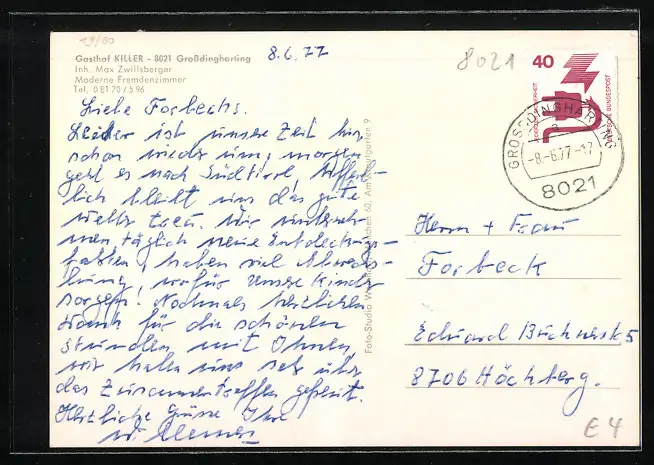 19/00
Gasthof KILLER - 8021 Großdingharting
Inh. Max Zwillsberger
Moderne Fremdenzimmer
Tel. 0 81 70 / 5 96
8.6.77
8021
40
DEUTSCHE BUNDESPOST
GROSSDINGHARTING
a
-8.-6.77-17
8021
Liebe Forbecks.
Leider ist unsere Zeit hier
schon wieder um, morgen
geht es nach Südtirol, hoffent-
lich bleibt uns das gute
Wetter treu. Wir unterneh-
men täglich neue Entdeckungs-
fahrten, haben viel Abwechs-
lung, wofür unsere Kinder
sorgen. Nochmals herzlichen
Dank für die schönen
Stunden mit Ihnen,
wir haben uns sehr über
das Zusammentreffen gefreut.
Herzliche Grüsse Ihre
Foto-Studio
Herrn + Frau
Forbeck
Eduard Buchnerstr 5
8706 Höchberg.
€ 4